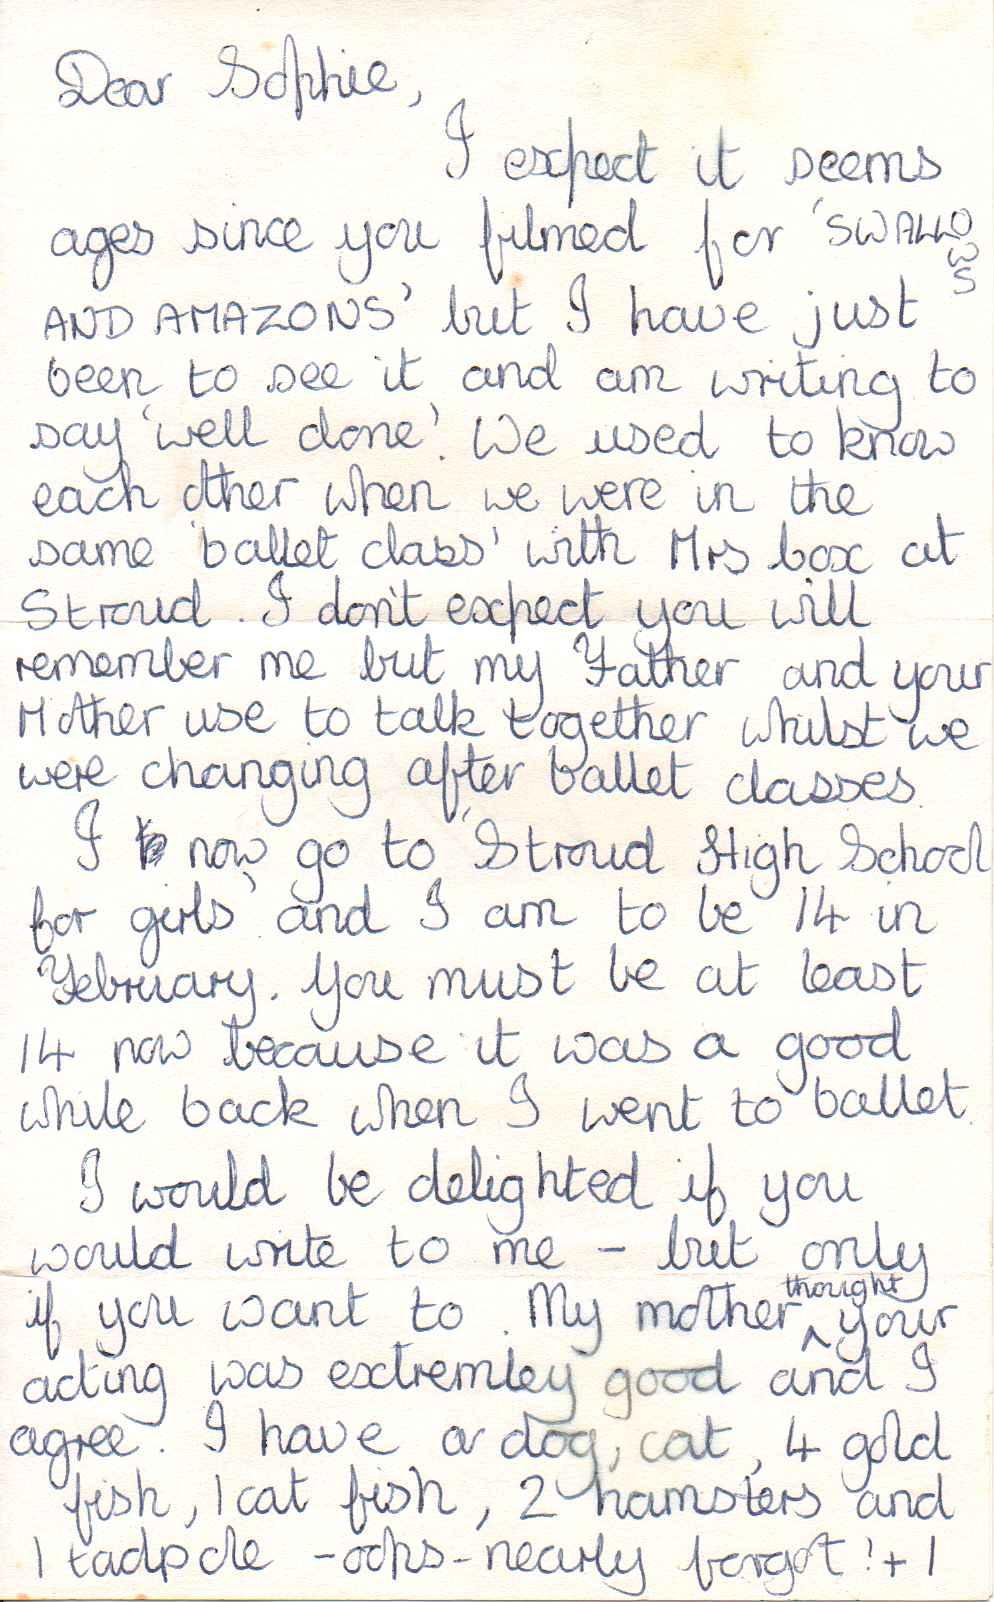 Dear Sophie,
I expect it seems
ages since you filmed for 'SWALLOWS
AND AMAZONS' but I have just
been to see it and am writing to
say 'well done'. We used to know
each other when we were in the
same 'ballet class' with Mrs box at
Stroud. I don't expect you will
remember me but my Father and your
Mother use to talk together whilst we
were changing after ballet classes.
I now go to 'Stroud High School
for girls' and I am to be 14 in
February. You must be at least
14 now because it was a good
while back when I went to ballet.
I would be delighted if you
would write to me - but only
if you want to. My mother thought your
acting was extremley good and I
agree. I have a dog, cat, 4 gold
fish, 1 cat fish, 2 hamsters and
1 tadpole - oops - nearly forgot! + 1